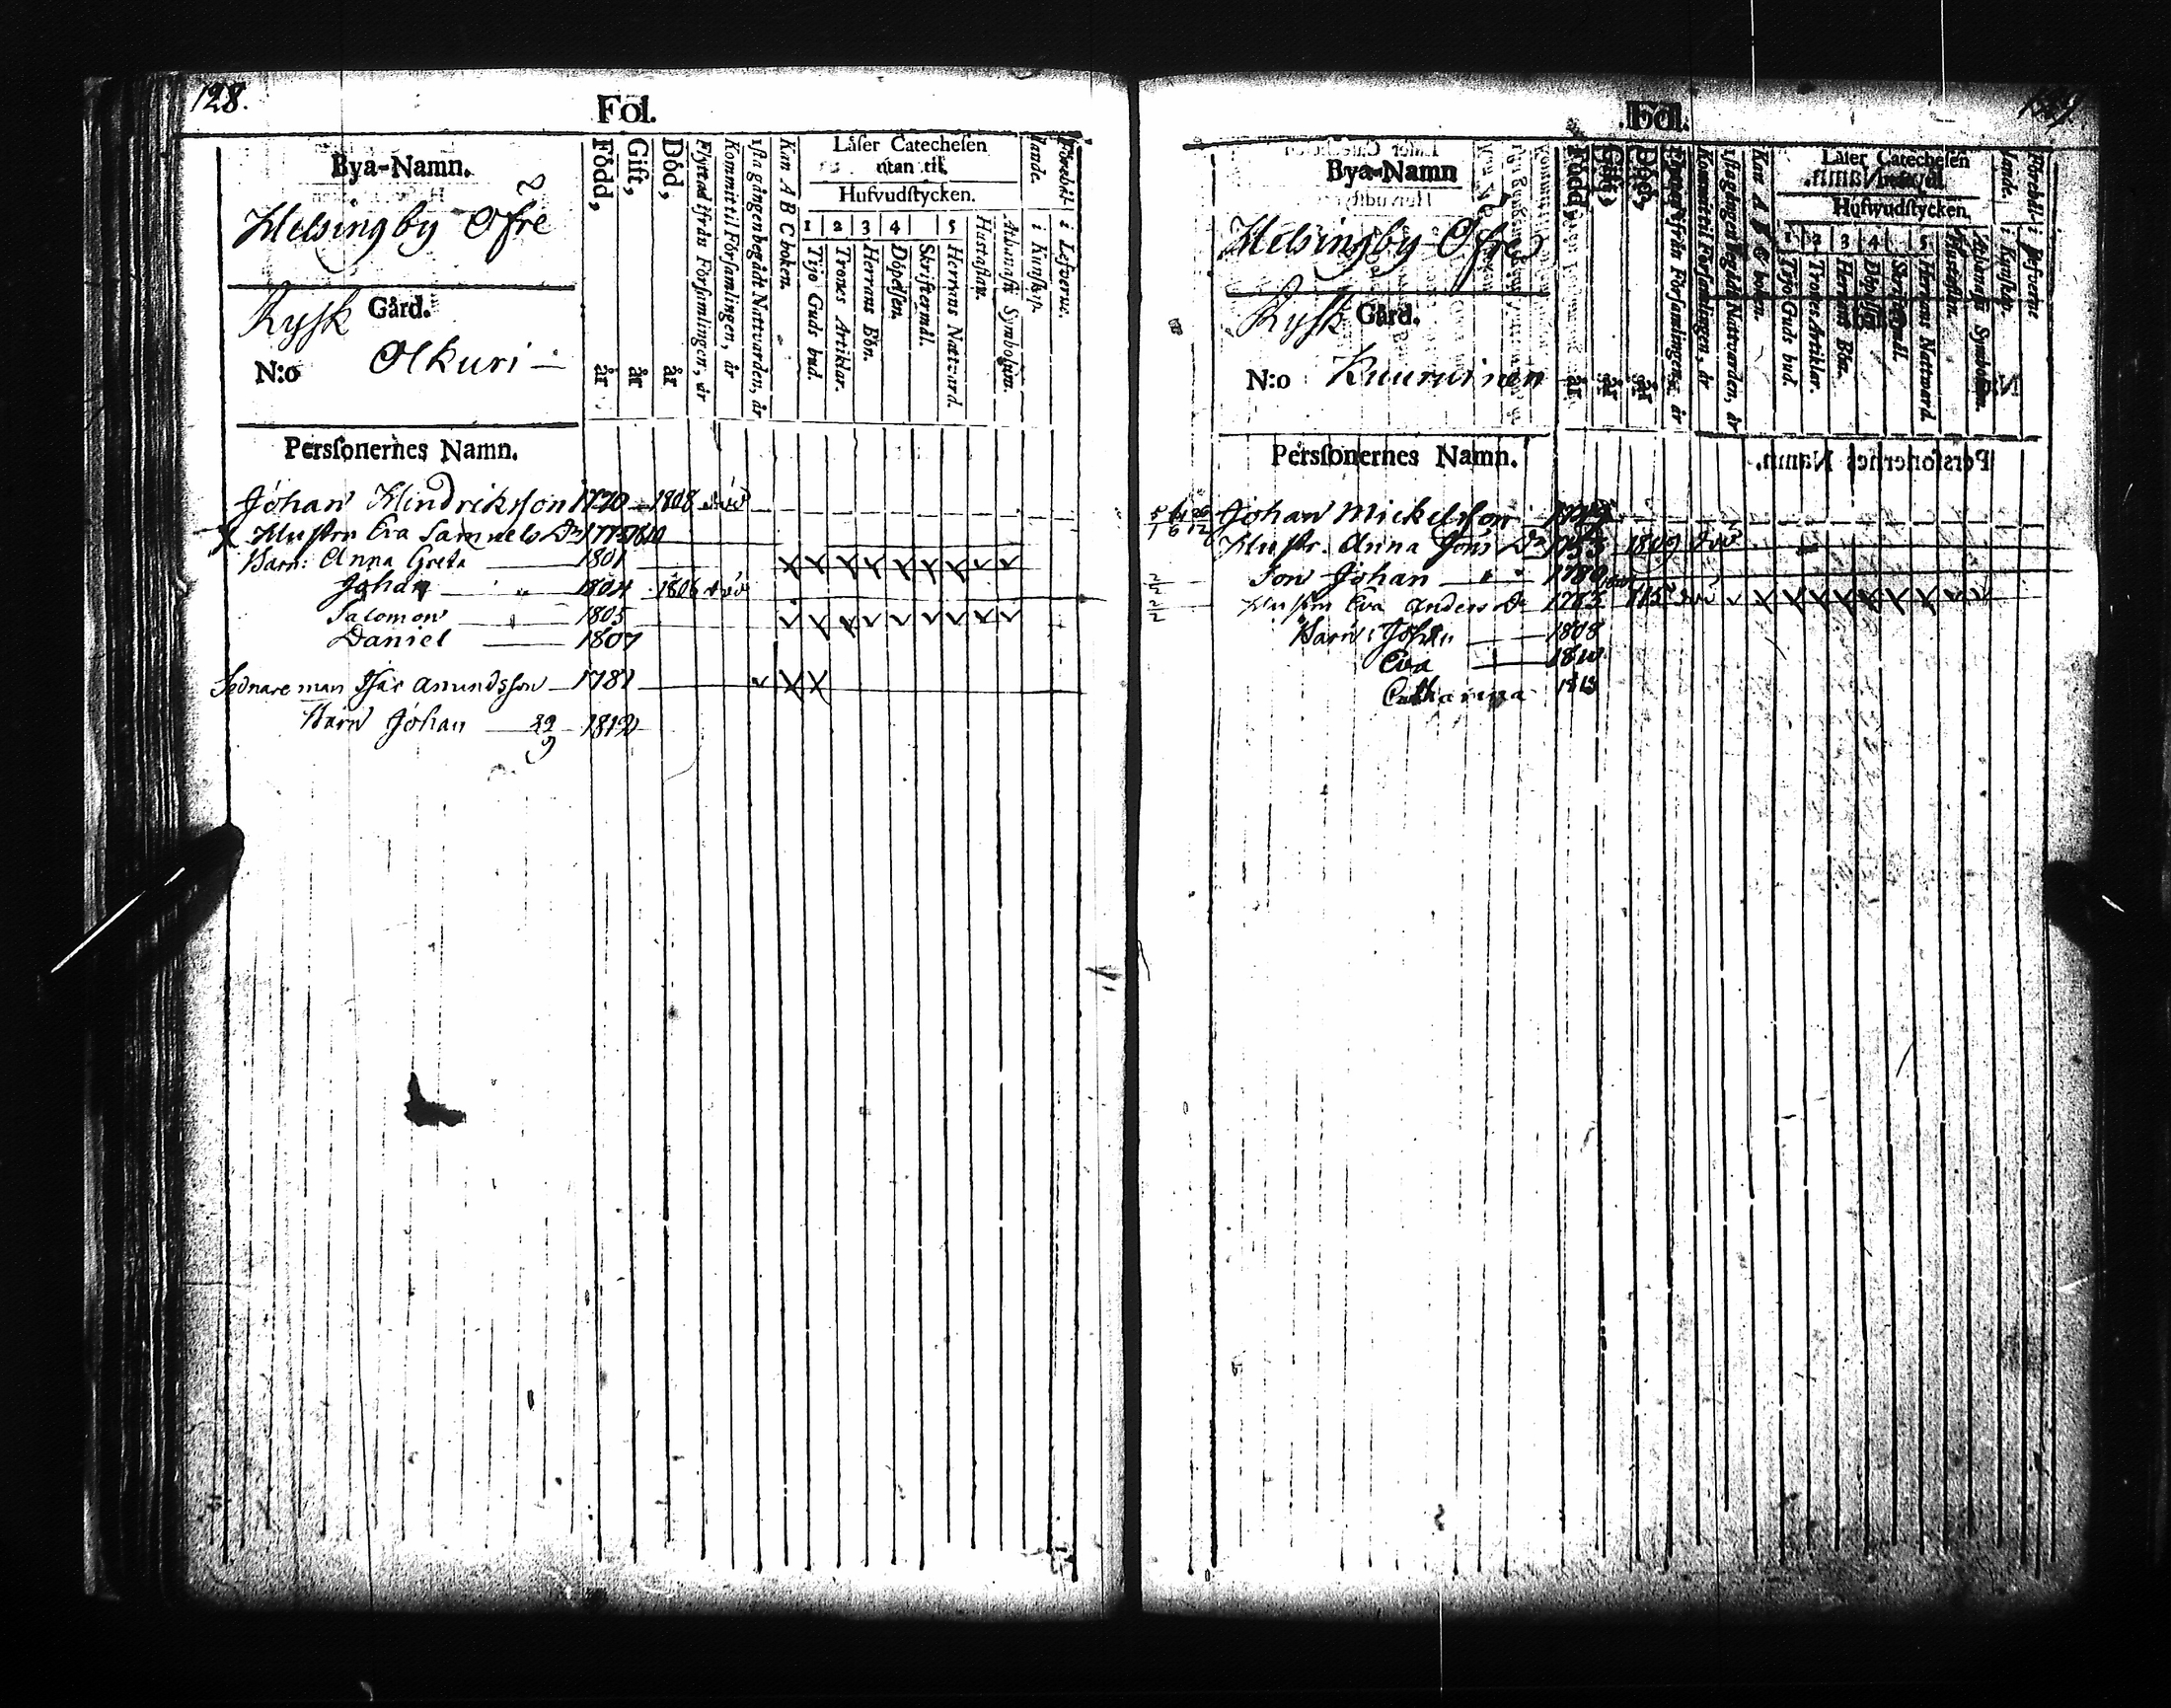 128.
Fol.
Bya-Namn.
Helsingby Öfre
Rysk Gård.
N:o Olkuri
Född, år
Gift, år
Död, år
Flyttad ifrån Församlingen, år
Kommit til Församlingen, år
1sta gången begådt Nattvarden, år
Kan A B C boken.
Låser Catechesen
utan til.
Hufvudstycken.
1 2 3 4 5
Tijo Guds bud.
Trones Artiklar.
Herrans Bön.
Döpelsen.
Skriftermål.
Herrans Nattvard.
Hustaflan.
Athanasii Symbolum.
Förehål-
lande.
i Kunskap.
i Lefverne.
Persſonernes Namn.
Johan Hindriksson 1770 1808 död
Hustru Eva Samuels Dr 1775
Barn: Anna Greta 1801
Johan 1804 1806 död
Salomon 1805
Daniel 1807
Sednare man Isac Amundsson 1781
Barn Johan 29/9 1812
Fol.
Bya-Namn
Helsingby Öfre
Rysk Gård.
N:o Kuuruinen
Född, år
Gift, år
Död, år
Flyttad ifrån Församlingen, år
Kommit til Församlingen, år
1sta gången begådt Nattvarden, år
Kan A B C boken.
Låser Catechesen
Hufwudstycken.
1 2 3 4 5
Tijo Guds bud.
Trones Artiklar.
Herrans Bön.
Döpelsen.
Skriftermål.
Herrans Nattward.
Hustaflan.
Athanasii Symbolum.
Förehål-
lande.
i Kunskap.
i Lefverne
Persſonernes Namn.
Johan Mickelsson
Hustr. Anna Johs Dr 1753 1809 död
Son Johan 1780
Hustru Eva Anders Dr 1785 död
Barn: Johan 1808
Eva 1810
Catharina 1813